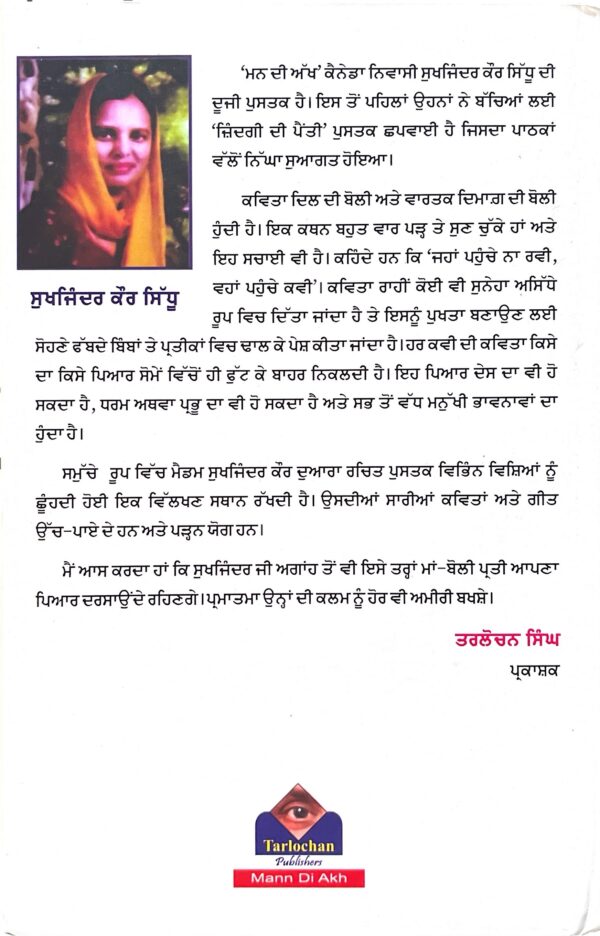 'ਮਨ ਦੀ ਅੱਖ' ਕੈਨੇਡਾ ਨਿਵਾਸੀ ਸੁਖਜਿੰਦਰ ਕੌਰ ਸਿੱਧੂ ਦੀ
ਦੂਜੀ ਪੁਸਤਕ ਹੈ। ਇਸ ਤੋਂ ਪਹਿਲਾਂ ਉਹਨਾਂ ਨੇ ਬੱਚਿਆਂ ਲਈ
'ਜ਼ਿੰਦਗੀ ਦੀ ਪੈਂਤੀ' ਪੁਸਤਕ ਛਪਵਾਈ ਹੈ ਜਿਸਦਾ ਪਾਠਕਾਂ
ਵੱਲੋਂ ਨਿੱਘਾ ਸੁਆਗਤ ਹੋਇਆ।
ਕਵਿਤਾ ਦਿਲ ਦੀ ਬੋਲੀ ਅਤੇ ਵਾਰਤਕ ਦਿਮਾਗ਼ ਦੀ ਬੋਲੀ
ਹੁੰਦੀ ਹੈ। ਇਕ ਕਥਨ ਬਹੁਤ ਵਾਰ ਪੜ੍ਹ ਤੇ ਸੁਣ ਚੁੱਕੇ ਹਾਂ ਅਤੇ
ਇਹ ਸਚਾਈ ਵੀ ਹੈ। ਕਹਿੰਦੇ ਹਨ ਕਿ 'ਜਹਾਂ ਪਹੁੰਚੇ ਨਾ ਰਵੀ,
ਵਹਾਂ ਪਹੁੰਚੇ ਕਵੀ'। ਕਵਿਤਾ ਰਾਹੀਂ ਕੋਈ ਵੀ ਸੁਨੇਹਾ ਅਸਿੱਧੇ
ਸੁਖਜਿੰਦਰ ਕੌਰ ਸਿੱਧੂ
ਰੂਪ ਵਿਚ ਦਿੱਤਾ ਜਾਂਦਾ ਹੈ ਤੇ ਇਸਨੂੰ ਪੁਖਤਾ ਬਣਾਉਣ ਲਈ
ਸੋਹਣੇ ਫੱਬਦੇ ਬਿੰਬਾਂ ਤੇ ਪ੍ਰਤੀਕਾਂ ਵਿਚ ਢਾਲ ਕੇ ਪੇਸ਼ ਕੀਤਾ ਜਾਂਦਾ ਹੈ। ਹਰ ਕਵੀ ਦੀ ਕਵਿਤਾ ਕਿਸੇ
ਦਾ ਕਿਸੇ ਪਿਆਰ ਸੋਮੇਂ ਵਿੱਚੋਂ ਹੀ ਫੁੱਟ ਕੇ ਬਾਹਰ ਨਿਕਲਦੀ ਹੈ। ਇਹ ਪਿਆਰ ਦੇਸ ਦਾ ਵੀ ਹੋ
ਸਕਦਾ ਹੈ, ਧਰਮ ਅਥਵਾ ਪ੍ਰਭੂ ਦਾ ਵੀ ਹੋ ਸਕਦਾ ਹੈ ਅਤੇ ਸਭ ਤੋਂ ਵੱਧ ਮਨੁੱਖੀ ਭਾਵਨਾਵਾਂ ਦਾ
ਹੁੰਦਾ ਹੈ।
ਸਮੁੱਚੇ ਰੂਪ ਵਿੱਚ ਮੈਡਮ ਸੁਖਜਿੰਦਰ ਕੌਰ ਦੁਆਰਾ ਰਚਿਤ ਪੁਸਤਕ ਵਿਭਿੰਨ ਵਿਸ਼ਿਆਂ ਨੂੰ
ਛੂੰਹਦੀ ਹੋਈ ਇਕ ਵਿੱਲਖਣ ਸਥਾਨ ਰੱਖਦੀ ਹੈ। ਉਸਦੀਆਂ ਸਾਰੀਆਂ ਕਵਿਤਾਂ ਅਤੇ ਗੀਤ
ਉੱਚ-ਪਾਏ ਦੇ ਹਨ ਅਤੇ ਪੜ੍ਹਨ ਯੋਗ ਹਨ।
ਮੈਂ ਆਸ ਕਰਦਾ ਹਾਂ ਕਿ ਸੁਖਜਿੰਦਰ ਜੀ ਅਗਾਂਹ ਤੋਂ ਵੀ ਇਸੇ ਤਰ੍ਹਾਂ ਮਾਂ-ਬੋਲੀ ਪ੍ਰਤੀ ਆਪਣਾ
ਪਿਆਰ ਦਰਸਾਉਂਦੇ ਰਹਿਣਗੇ। ਪ੍ਰਮਾਤਮਾ ਉਨ੍ਹਾਂ ਦੀ ਕਲਮ ਨੂੰ ਹੋਰ ਵੀ ਅਮੀਰੀ ਬਖਸ਼ੇ।
ਤਰਲੋਚਨ ਸਿੰਘ
ਪ੍ਰਕਾਸ਼ਕ
Tarlochan
Publishers
Mann Di Akh